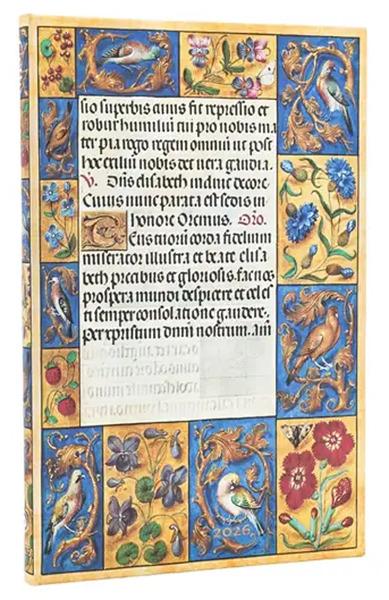 sio superbis cuius fit repressio et
robur humiliū tui pro nobis ma
ter pia rogo regem omniū ut post
hoc exiliū nobis det vera gaudia.
V. Diffusa
Cuius nunc parata est sedis in
honore Oremus. Oro.
Deus tuorū corda fidelium
miserator illustra et beate elisa
beth precibus et gloriosis. fac nos
prospera mundi despicere et celes
ti semper consolatione gaudere.
Per xpristum dnm̄ nostrum. am̄
2026